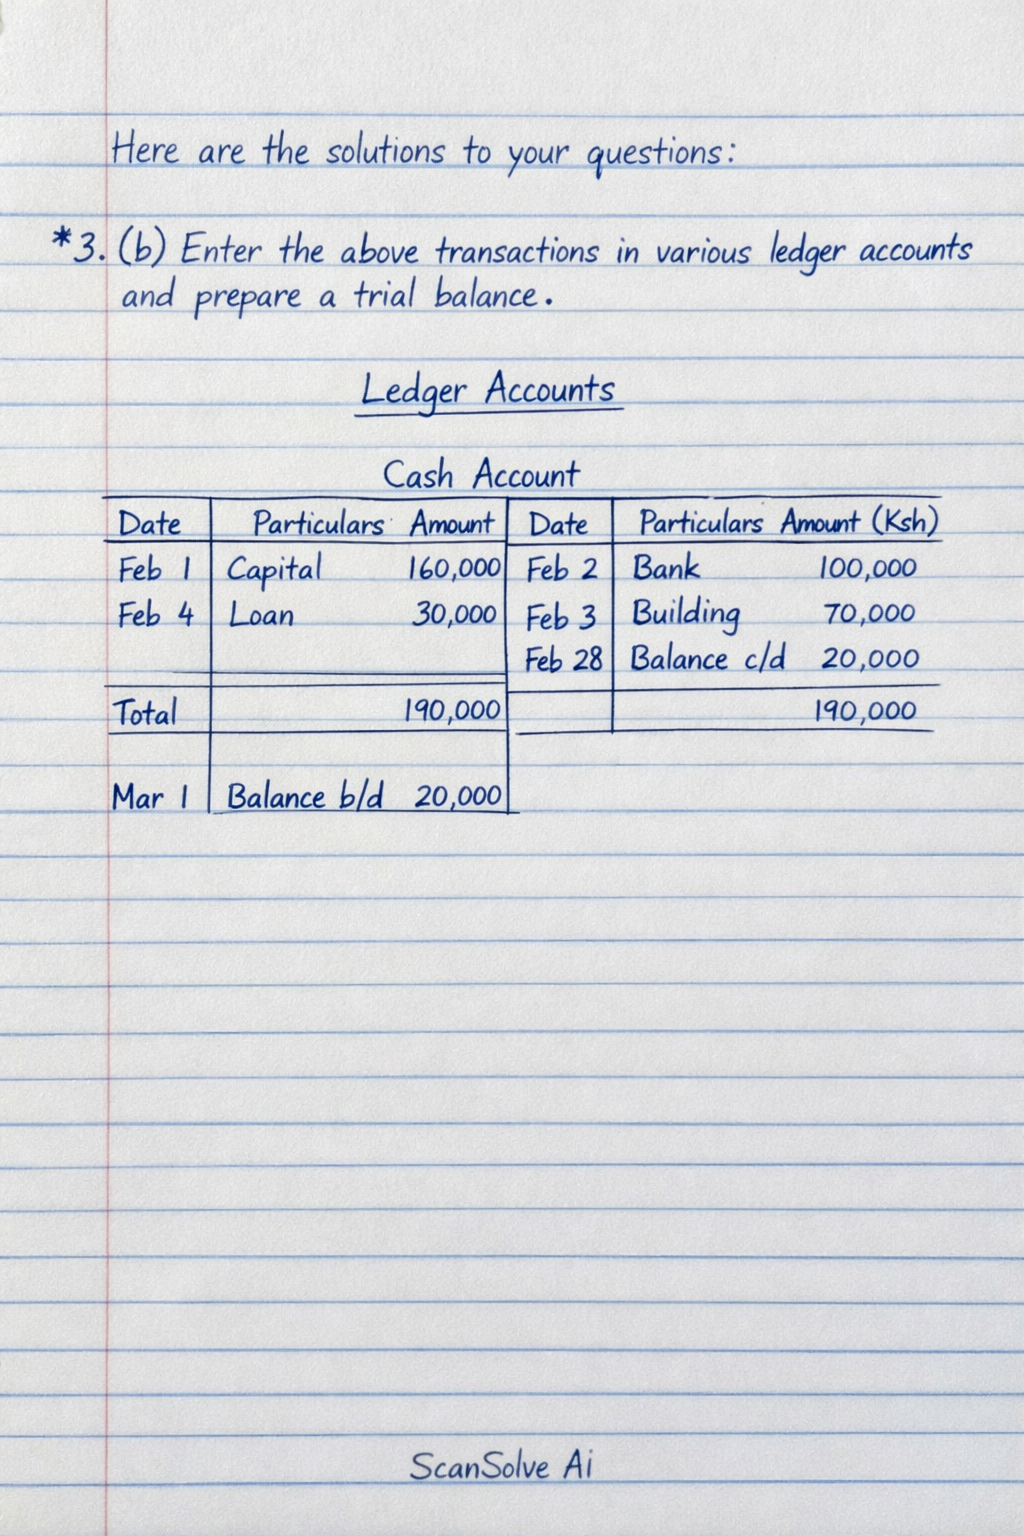 Here are the solutions to your questions:
*3. (b) Enter the above transactions in various ledger accounts
and prepare a trial balance.
Ledger Accounts
Cash Account
Date Particulars Amount Date Particulars Amount (Ksh)
Feb 1 Capital 160,000 Feb 2 Bank 100,000
Feb 4 Loan 30,000 Feb 3 Building 70,000
Feb 28 Balance c/d 20,000
Total 190,000 190,000
Mar 1 Balance b/d 20,000
ScanSolve Ai